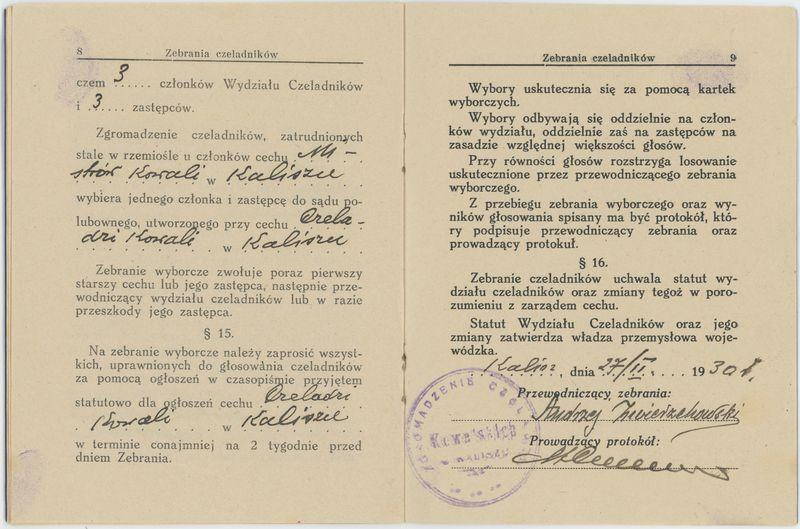 8 Zebrania czeladników
czem 3 ...... członków Wydziału Czeladników
i 3 ..... zastępców.
Zgromadzenie czeladników, zatrudnionych
stale w rzemiośle u członków cechu Mi-
strów Kowali w Kaliszu
wybiera jednego członka i zastępcę do sądu po-
lubownego, utworzonego przy cechu Czela-
dzi Kowali w Kaliszu
Zebranie wyborcze zwołuje poraz pierwszy
starszy cechu lub jego zastępca, następnie prze-
wodniczący wydziału czeladników lub w razie
przeszkody jego zastępca.
§ 15.
Na zebranie wyborcze należy zaprosić wszyst-
kich, uprawnionych do głosowania czeladników
za pomocą ogłoszeń w czasopiśmie przyjętem
statutowo dla ogłoszeń cechu Czeladzi
Kowali w Kaliszu
w terminie conajmniej na 2 tygodnie przed
dniem Zebrania.
Zebrania czeladników 9
Wybory uskutecznia się za pomocą kartek
wyborczych.
Wybory odbywają się oddzielnie na człon-
ków wydziału, oddzielnie zaś na zastępców na
zasadzie względnej większości głosów.
Przy równości głosów rozstrzyga losowanie
uskutecznione przez przewodniczącego zebrania
wyborczego.
Z przebiegu zebrania wyborczego oraz wy-
ników głosowania spisany ma być protokół, któ-
ry podpisuje przewodniczący zebrania oraz
prowadzący protokuł.
§ 16.
Zebranie czeladników uchwala statut wy-
działu czeladników oraz zmiany tegoż w poro-
zumieniu z zarządem cechu.
Statut Wydziału Czeladników oraz jego
zmiany zatwierdza władza przemysłowa woje-
wódzka.
Kalisz, dnia 27/II .... 1930 r.
Przewodniczący zebrania:
Andrzej Zwierzchowski
Prowadzący protokół:
ZGROMADZENIE
Kowalskich